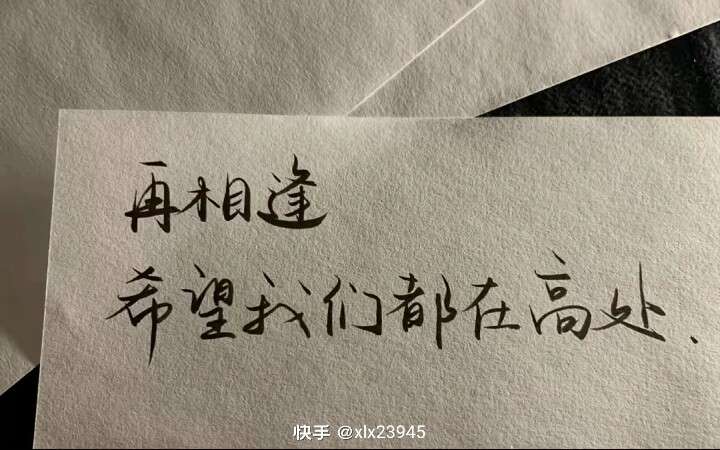 再相逢
希望我们都在高处.
快手 @xlx23945